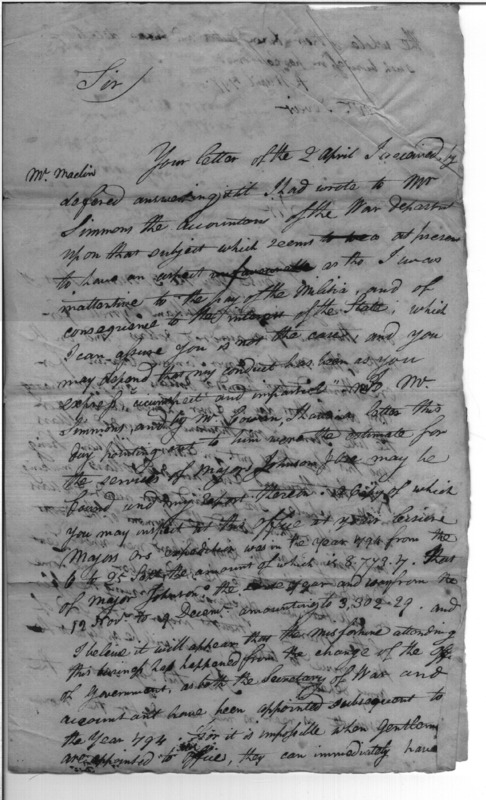 Sir
Your letter of the 2 April I received, by
Mr. Maclin
defered answering it I had wrote to Mr
Simmons the accountant of the War department
upon that subject which seems at present
to have an aspect unfavourable as tho I was
inattentive to the pay of the Militia, and of
consequence to the interest of the State, which
I can assure you is not the case, and you
may depend that my conduct has been as you
express, "circumspect and impartial"
Simmons and by Mr. Gowan, I have letter this
day pointing out to him where the estimate for
the services of Major Johnson &c may be
found and my report thereon a copy of which
you may inspect at this office at your leisure
Majors Ors expedition was in the year 794 from the
6 to 25 Sept the amount of which is 8.773.7. That
of Major Johnson the same year and was from the
12 Nov. to 4 Decem. amounting to 3,302-29. and
I beleve it will appear that the misfortune attending
this business has happened from the change of the Offs
of Government, as both the Secretary of War and
accountant have been appointed subsequent to
the Year 794. For it is impossible when Gentlemen
are appointed to office, they can immediately have